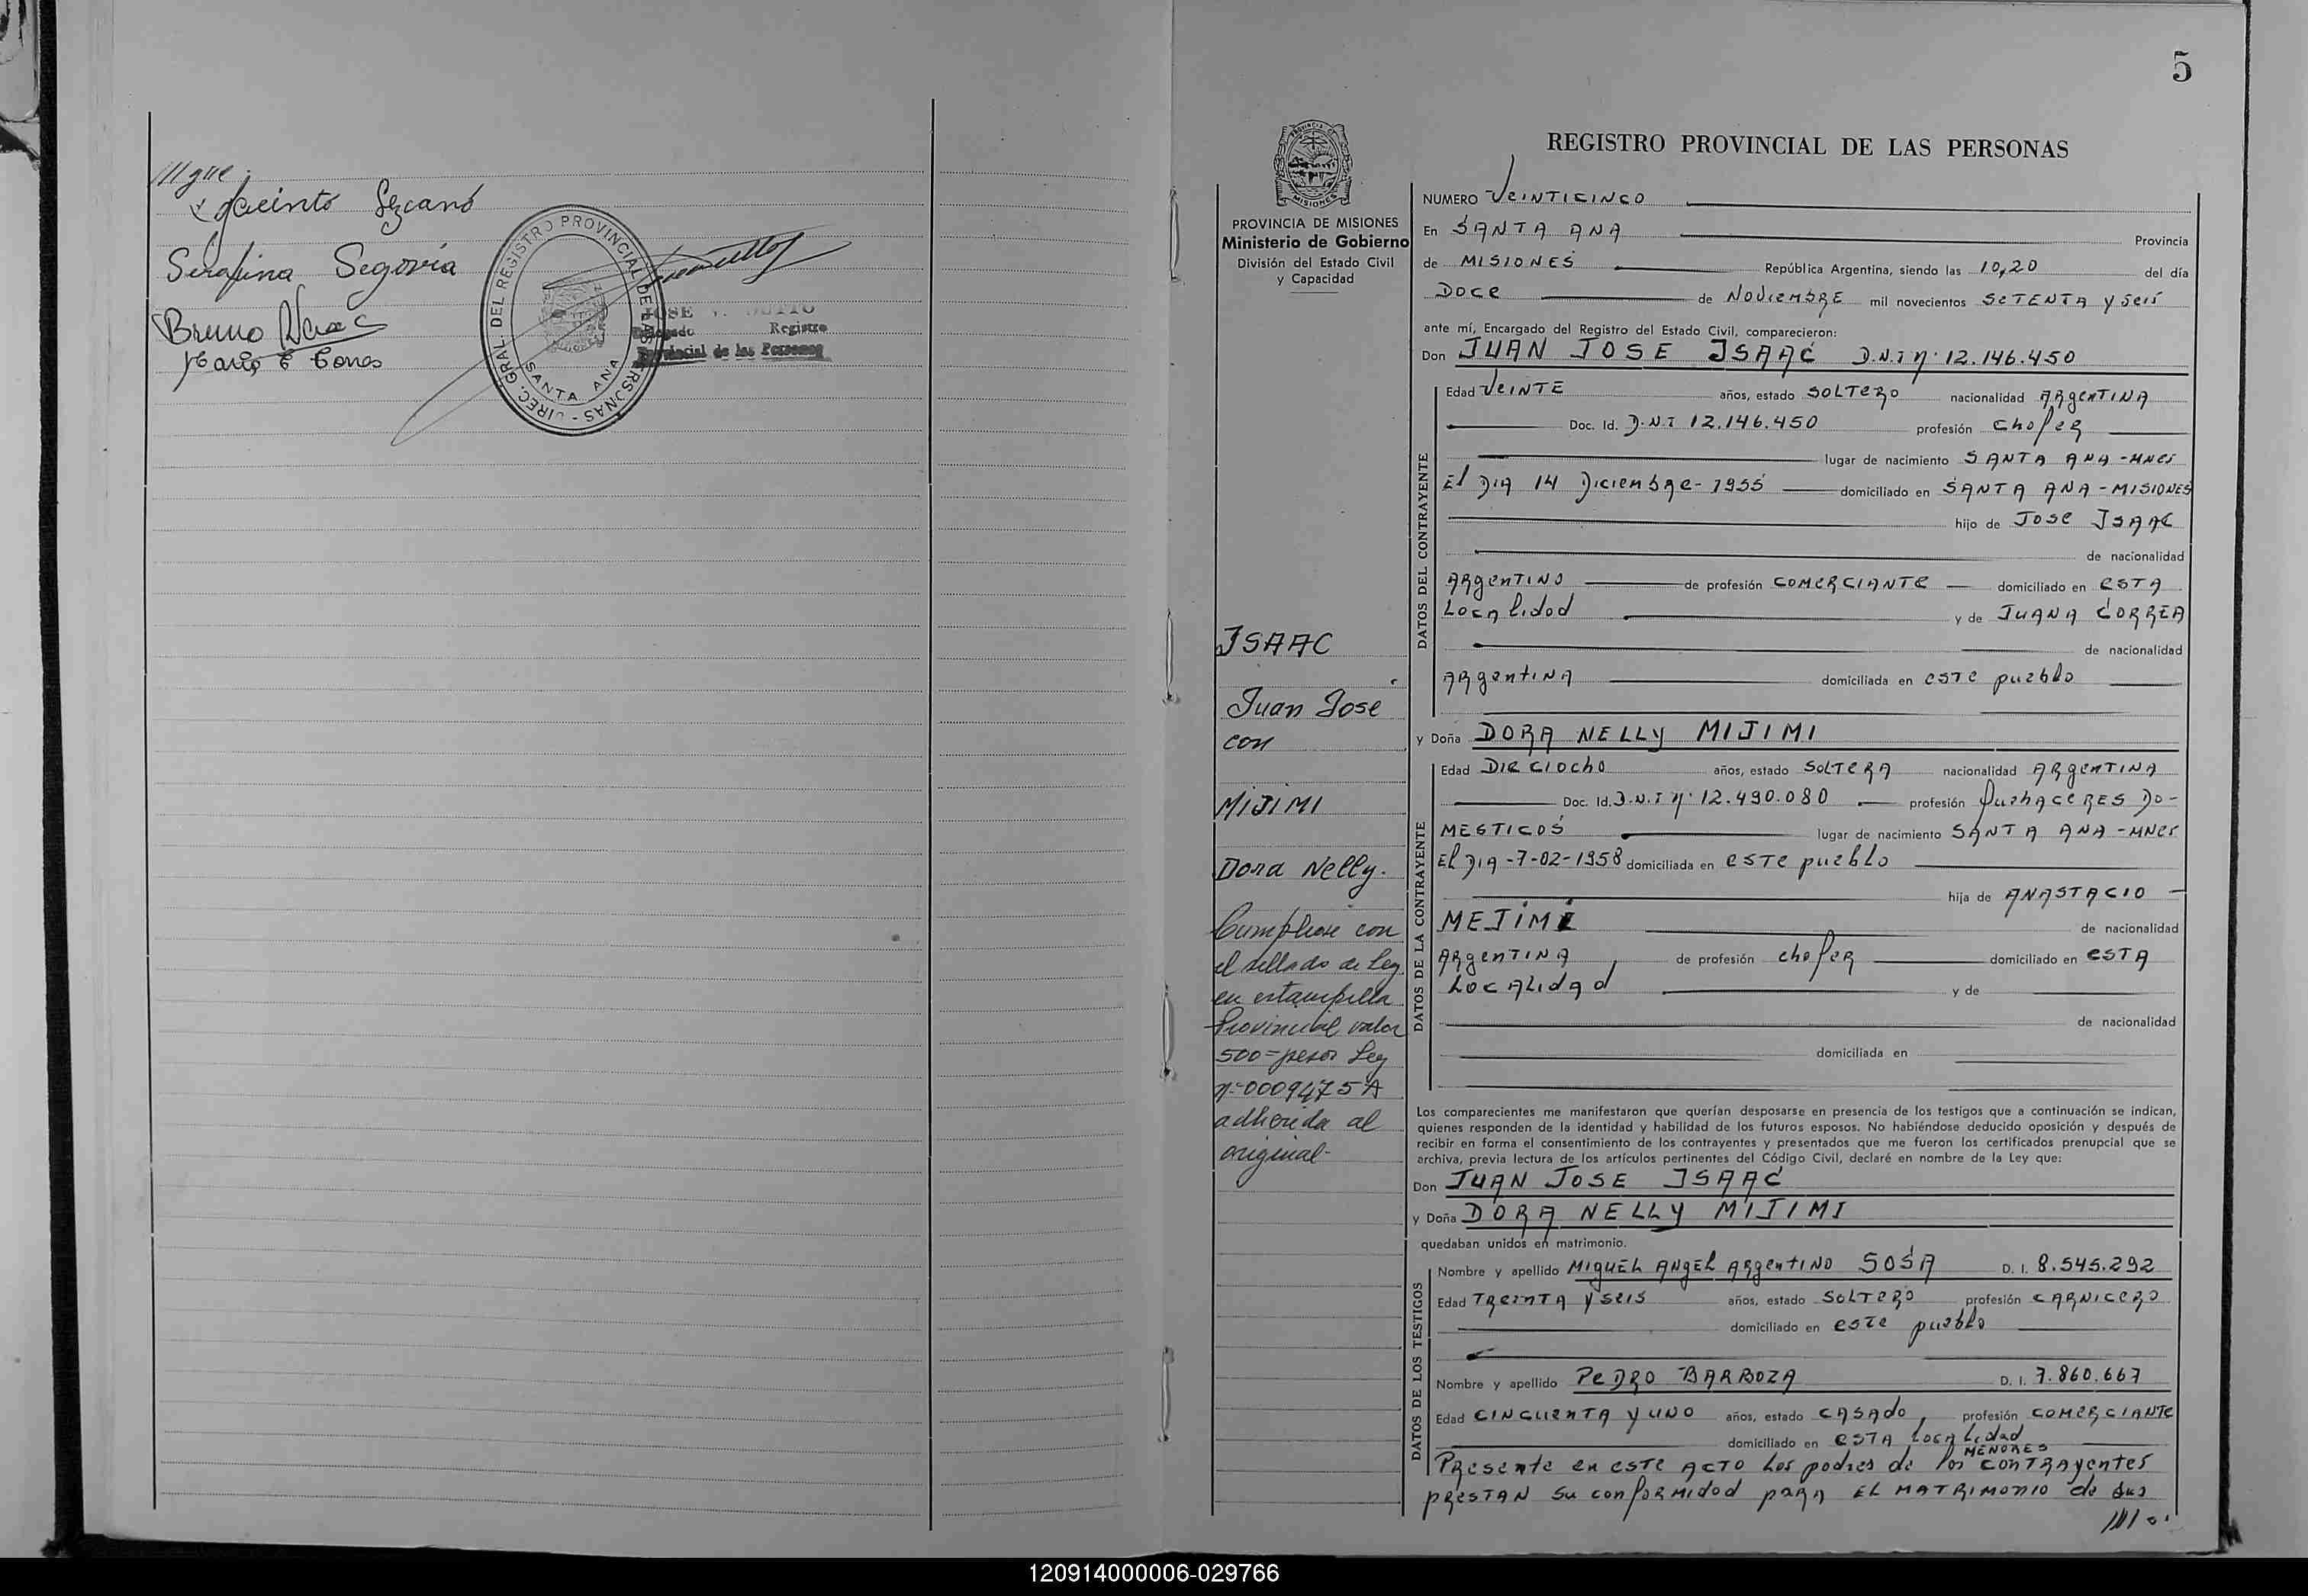 Jacinto Lezcano
Serafina Segovia
Bruno
DIREC. GRAL. DEL REGISTRO PROVINCIAL DE LAS PERSONAS
SANTA ANA
JOSE
Registro
Provincial de las Personas
5
PROVINCIA DE MISIONES
Ministerio de Gobierno
División del Estado Civil
y Capacidad
ISAAC
Juan José
con
MIJIMI
Dora Nelly.
Cumplióse con
el sellado de Ley
en estampilla
Provincial valor
500= pesos Ley
Nº 0009475 A
adherida al
original-
REGISTRO PROVINCIAL DE LAS PERSONAS
NUMERO VEINTICINCO
En SANTA ANA Provincia
de MISIONES República Argentina, siendo las 10,20 del día
DOCE de NOVIEMBRE mil novecientos SETENTA y SEIS
ante mí, Encargado del Registro del Estado Civil, comparecieron:
Don JUAN JOSE ISAAC D.N.I Nº 12.146.450
DATOS DEL CONTRAYENTE
Edad VEINTE años, estado SOLTERO nacionalidad ARGENTINA
Doc. Id. D.N.I 12.146.450 profesión CHOFER
lugar de nacimiento SANTA ANA - MNES
El DIA 14 DICIEMBRE - 1955 domiciliado en SANTA ANA - MISIONES
hijo de JOSE ISAAC
de nacionalidad
ARGENTINO de profesión COMERCIANTE domiciliado en ESTA
LOCALIDAD y de JUANA CORREA
de nacionalidad
ARGENTINA domiciliada en ESTE PUEBLO
y Doña DORA NELLY MIJIMI
DATOS DE LA CONTRAYENTE
Edad DIECIOCHO años, estado SOLTERA nacionalidad ARGENTINA
Doc. Id. D.N.I Nº 12.490.080 profesión QUEHACERES DO-
MESTICOS lugar de nacimiento SANTA ANA - MNES
El DIA -7-02-1958 domiciliada en ESTE PUEBLO
hija de ANASTACIO -
MEJIMI de nacionalidad
ARGENTINA de profesión CHOFER domiciliado en ESTA
LOCALIDAD y de
de nacionalidad
domiciliada en
Los comparecientes me manifestaron que querían desposarse en presencia de los testigos que a continuación se indican,
quienes responden de la identidad y habilidad de los futuros esposos. No habiéndose deducido oposición y después de
recibir en forma el consentimiento de los contrayentes y presentados que me fueron los certificados prenupcial que se
archiva, previa lectura de los artículos pertinentes del Código Civil, declaré en nombre de la Ley que:
Don JUAN JOSE ISAAC
y Doña DORA NELLY MIJIMI
quedaban unidos en matrimonio.
DATOS DE LOS TESTIGOS
Nombre y apellido MIGUEL ANGEL ARGENTINO SOSA D. I. 8.545.292
Edad TREINTA y SEIS años, estado SOLTERO profesión CARNICERO
domiciliado en ESTE PUEBLO
Nombre y apellido PEDRO BARBOZA D. I. 7.860.667
Edad CINCUENTA y UNO años, estado CASADO, profesión COMERCIANTE
domiciliado en ESTA LOCALIDAD
MENORES
PRESENTE en ESTE ACTO los padres de los CONTRAYENTES
PRESTAN su conformidad para EL MATRIMONIO de sus
120914000006-029766